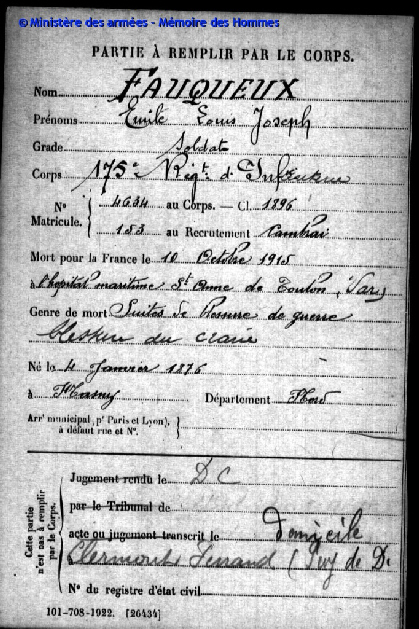 © Ministère des armées - Mémoire des Hommes
PARTIE À REMPLIR PAR LE CORPS.
Nom FAUQUEUX
Prénoms Emile Louis Joseph
Grade Soldat
Corps 175e Regt. d'Infanterie
N° Matricule. { 4634 au Corps. — Cl. 1896
153 au Recrutement Cambrai
Mort pour la France le 10 Octobre 1915
à l'hopital maritime St Anne de Toulon, Var
Genre de mort Suites de blessure de guerre
blessure du crane
Né le 4 Janvier 1876
à Département Nord
Arrt municipal (pr Paris et Lyon), à défaut rue et N°. }
Cette partie n'est pas à remplir par le Corps. {
Jugement rendu le D C
par le Tribunal de
acte ou jugement transcrit le Domicile
Clermont Ferrand (Puy de D
N° du registre d'état civil
101-708-1922. [26434]